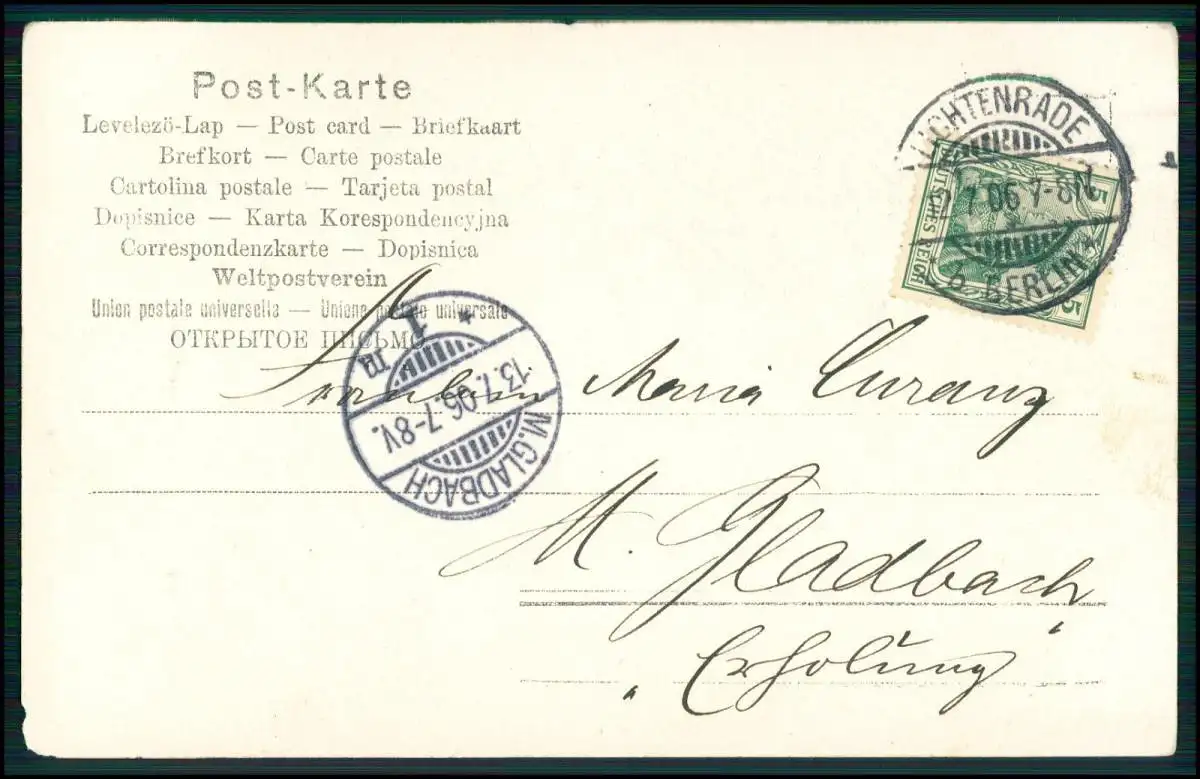 Post-Karte
Levelező-Lap — Post card — Briefkaart
Brefkort — Carte postale
Cartolina postale — Tarjeta postal
Dopisnice — Karta Korespondencyjna
Correspondenzkarte — Dopisnica
Weltpostverein
Union postale universelle — Unione postale universale
ОТКРЫТОЕ ПИСЬМО
LICHTENRADE
7.06 7-8N
b. BERLIN
DEUTSCHES REICH
5
5
M.GLADBACH
13.7.06.7-8V.
* 1 m
Fräulein Maria Curanz
M. Gladbach
„Erholung"